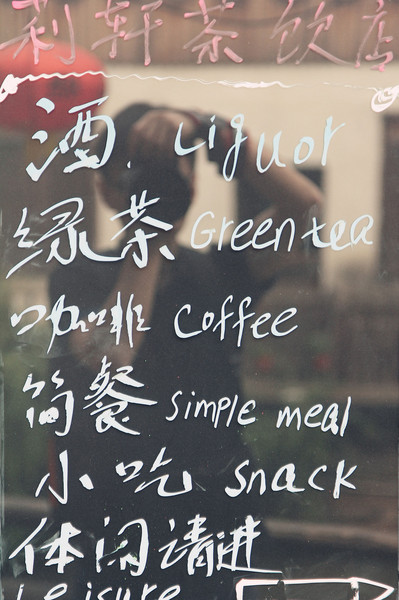 利轩茶饮店
酒. Liquor
绿茶 Green tea
咖啡 coffee
简餐 simple meal
小吃 snack
体闲请进
Leisure